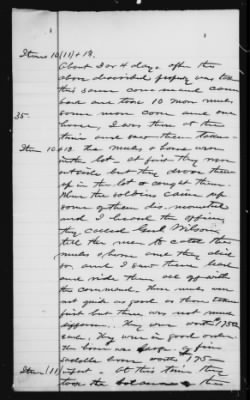 Items 10 (11) + 12.
About 3 or 4 days after the
above described property was taken
this same command came
back and took 10 more mules
some more corn and one
35
horse, I saw them at the
time and saw them taken
Item 10 + 12 the mules & horse were
in the lot. at first they were
outside but they drove them
up in the lot & caught them.
When the soldiers came up
some of them dismounted
and I heard the officer
they called Genl Wilson
tell the men to catch the
mules & horse and they did
so, and I saw them lead
and ride them all off with
the command. These mules were
not quite as good as those taken
first but there was not much
difference. They were worth 175
each, They were in good order
The horse was a fine
saddle horse worth 175 —
Item (11) At this time they
took the balance of the